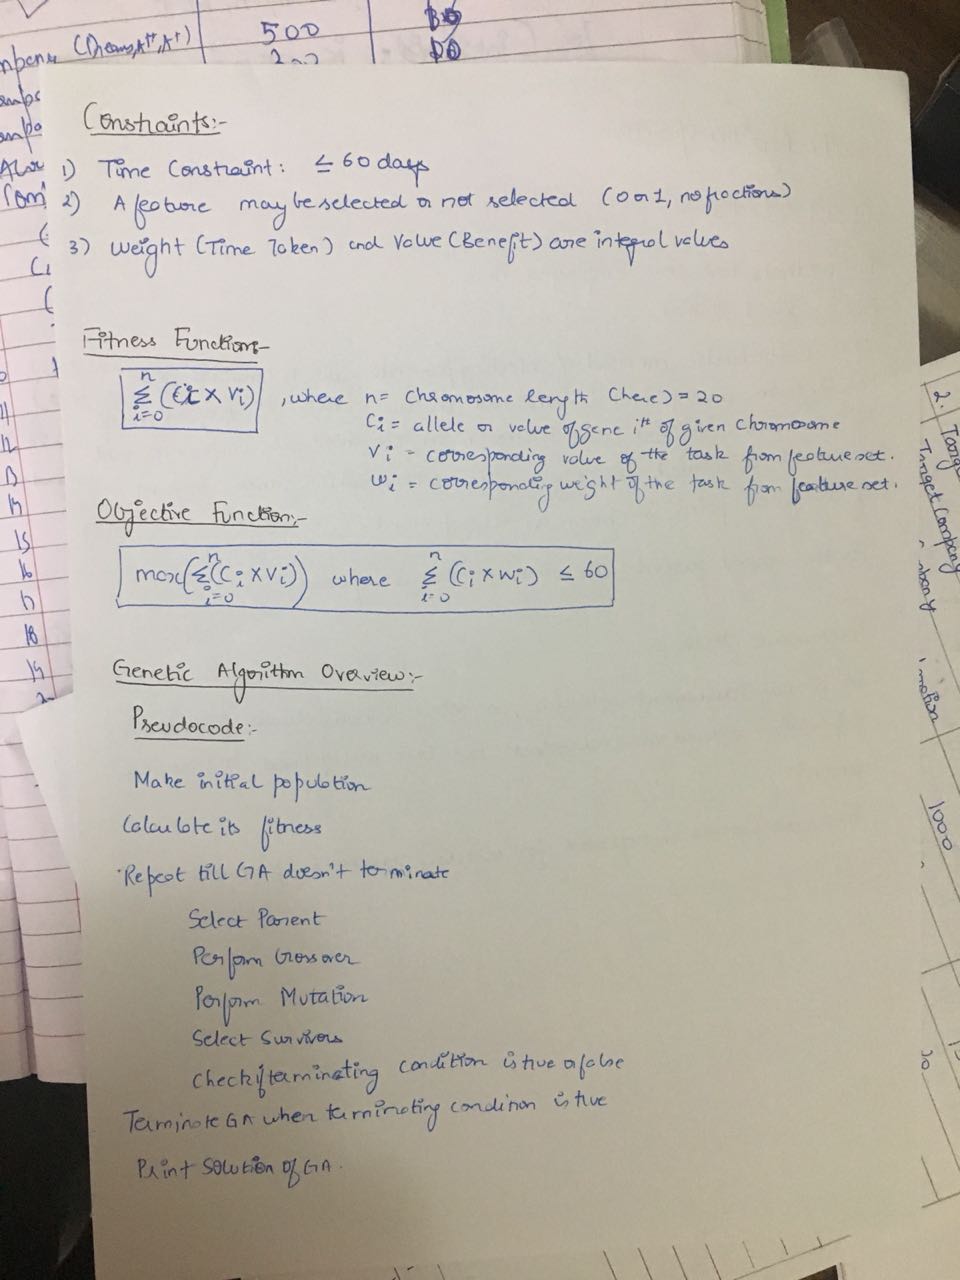 (Dreams, A++, A+) 500
Constraints:-
1) Time Constraint: ≤ 60 days
2) A feature may be selected or not selected (0 or 1, no fractions)
3) Weight (Time Token) and Value (Benefit) are integral values
Fitness Function:-
n
Σ (Ci × Vi) , where n = Chromosome length (here) = 20
i=0
Ci = allele or value of gene ith of given chromosome
Vi - corresponding value of the task from feature set.
wi = corresponding weight of the task from feature set.
Objective Function:-
max(Σ(Ci × Vi)) where Σ (Ci × wi) ≤ 60
n i=0 n i=0
Genetic Algorithm Overview:-
Pseudocode:-
Make initial population
Calculate its fitness
Repeat till GA doesn't terminate
Select Parent
Perform Crossover
Perform Mutation
Select Survivors
Check if terminating condition is true or false
Terminate GA when terminating condition is true
Print Solution of GA.
2.
Target Company
1000